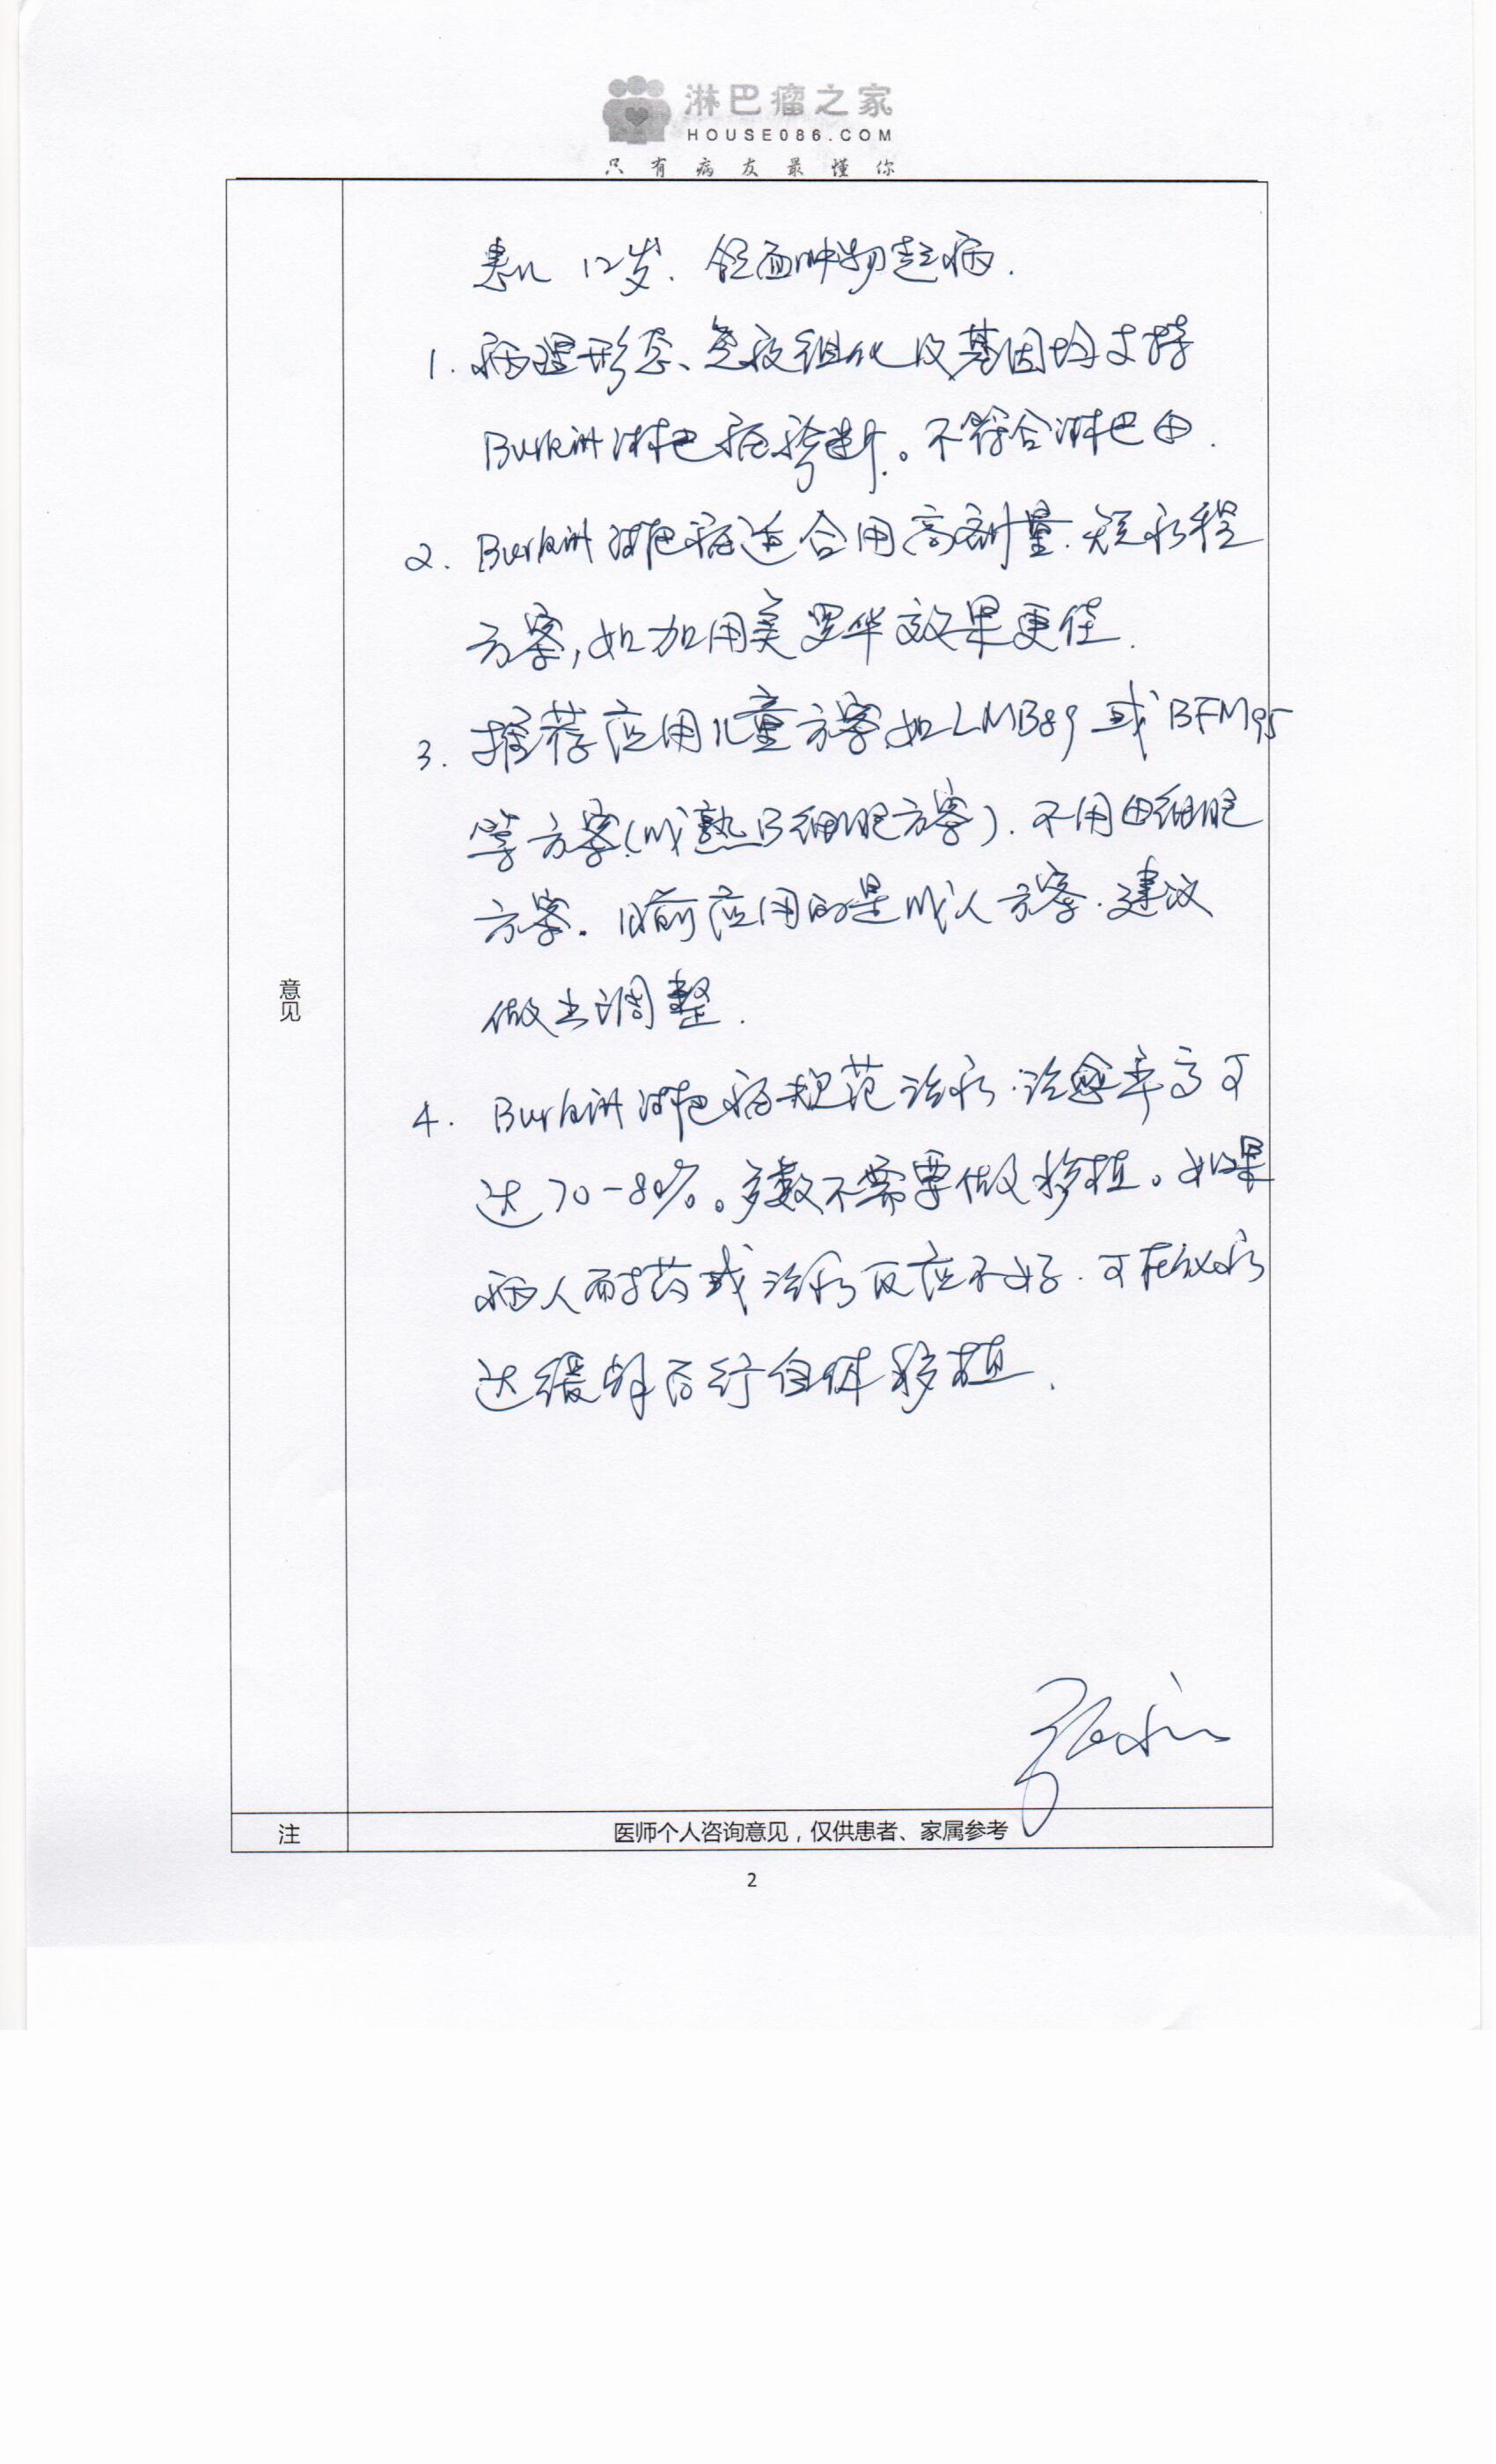 淋巴瘤之家
HOUSE086.COM
只有病友最懂你
患儿 12岁. 颌面肿物起病.
1. 病理形态、免疫组化及基因均支持
Burkitt淋巴瘤诊断。不符合淋巴母.
2. Burkitt淋巴瘤适合用高剂量.短疗程
方案,如加用美罗华效果更佳.
3. 推荐应用儿童方案如LMB89或BFM95
等方案(成熟B细胞方案).不用母细胞
方案.目前应用的是成人方案.建议
做出调整.
4. Burkitt淋巴瘤规范治疗.治愈率高可
达70-80%。多数不需要做移植。如果
病人耐药或治疗反应不好.可在化疗
达缓解后行自体移植.
意见
张永红
注
医师个人咨询意见，仅供患者、家属参考
2